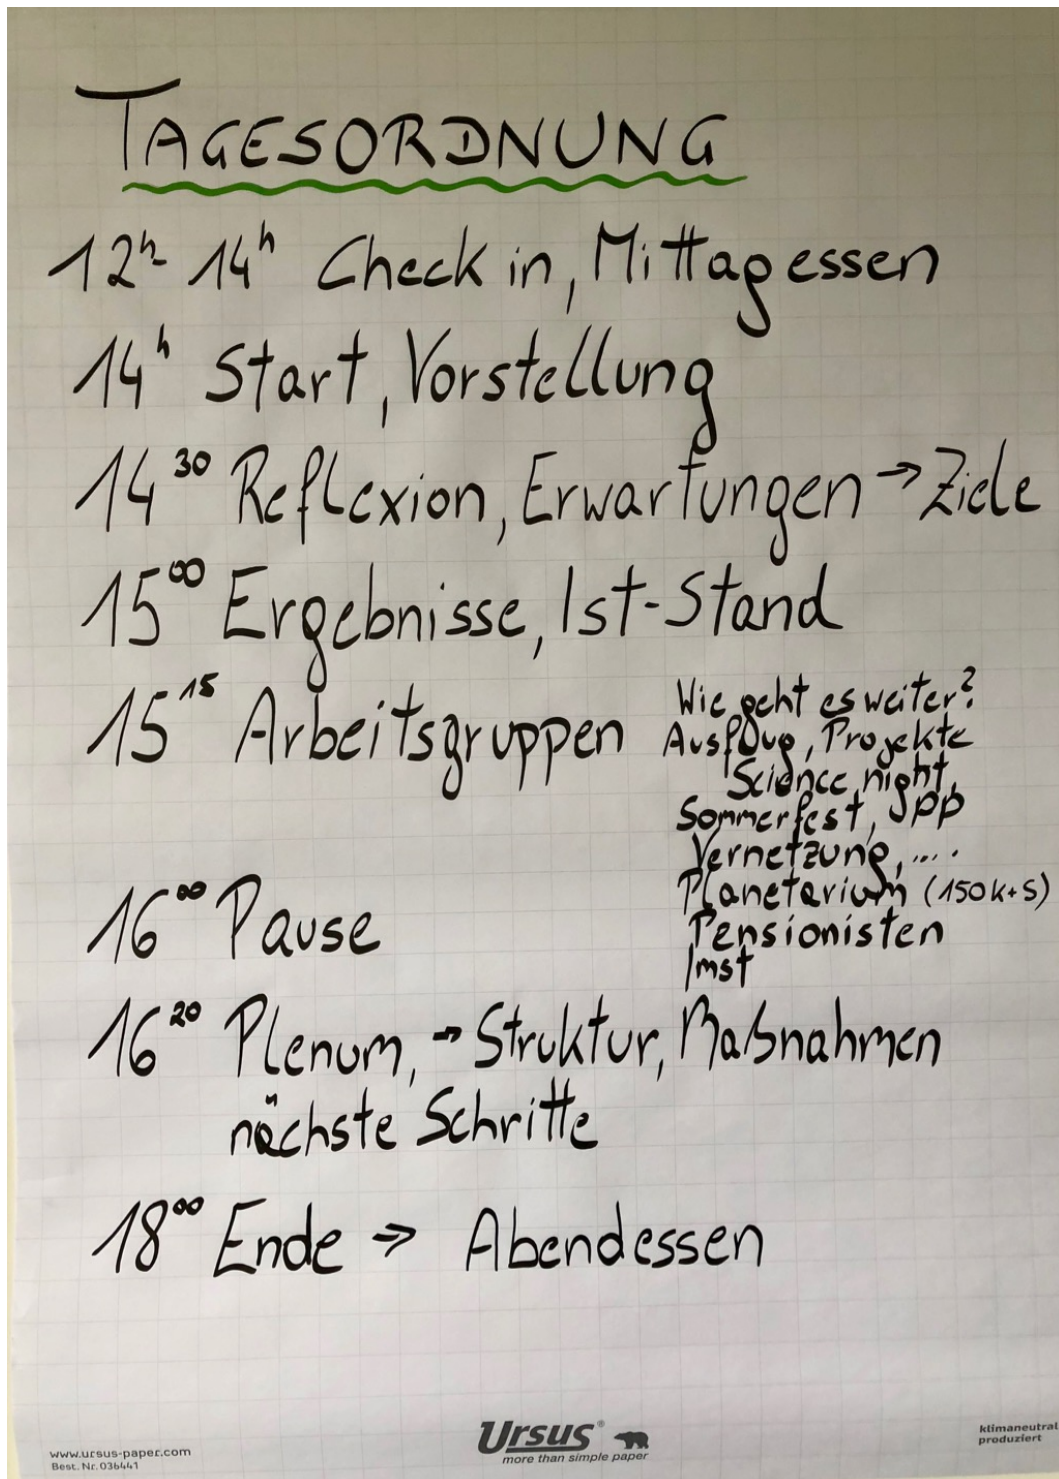 TAGESORDNUNG
12h- 14h Check in, Mittagessen
14h Start, Vorstellung
14 30 Reflexion, Erwartungen → Ziele
15 00 Ergebnisse, Ist-Stand
15 15 Arbeitsgruppen
Wie geht es weiter?
Ausflug, Projekte
Science night,
Sommerfest, JPP
Vernetzung, ....
Planetarium (150k+S)
Pensionisten
Imst
16 00 Pause
16 20 Plenum, → Struktur, Maßnahmen
nächste Schritte
18 00 Ende → Abendessen
www.ursus-paper.com
Best. Nr. 036441
Ursus®
more than simple paper
klimaneutral
produziert